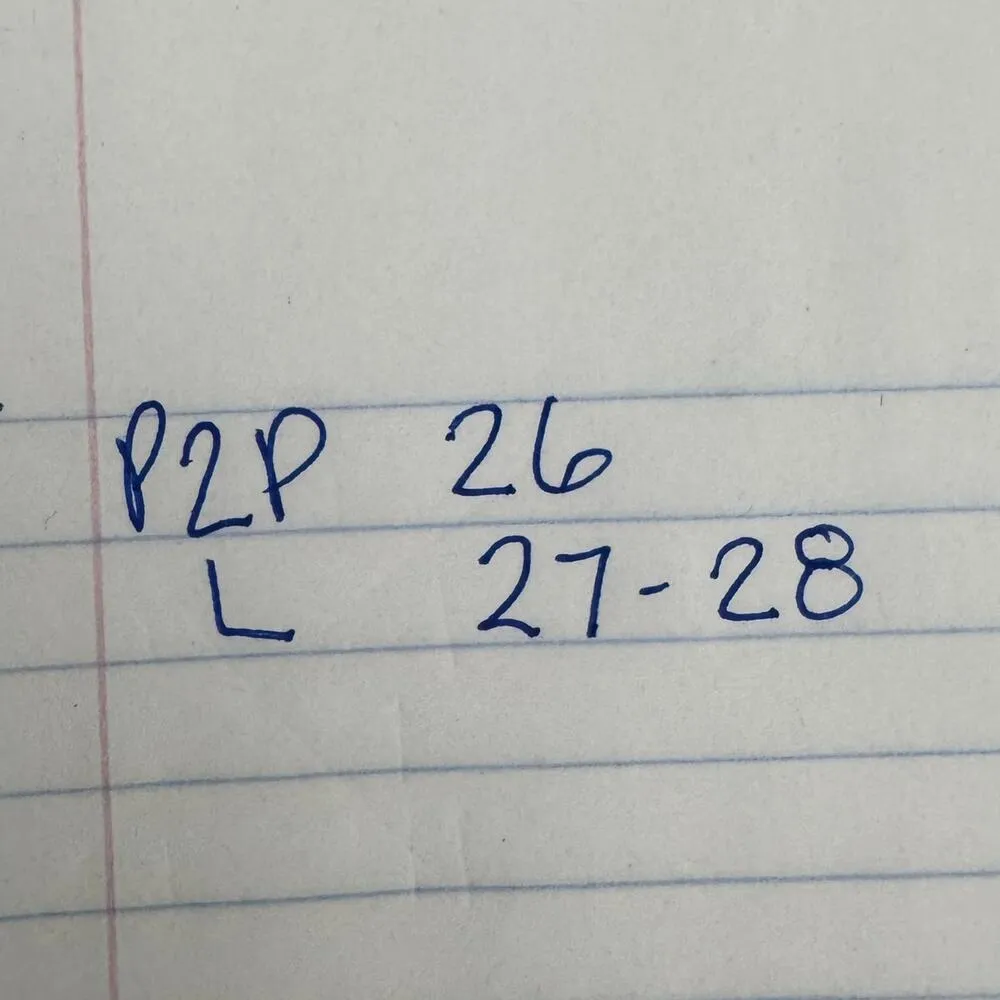 P2P 26
L 27-28